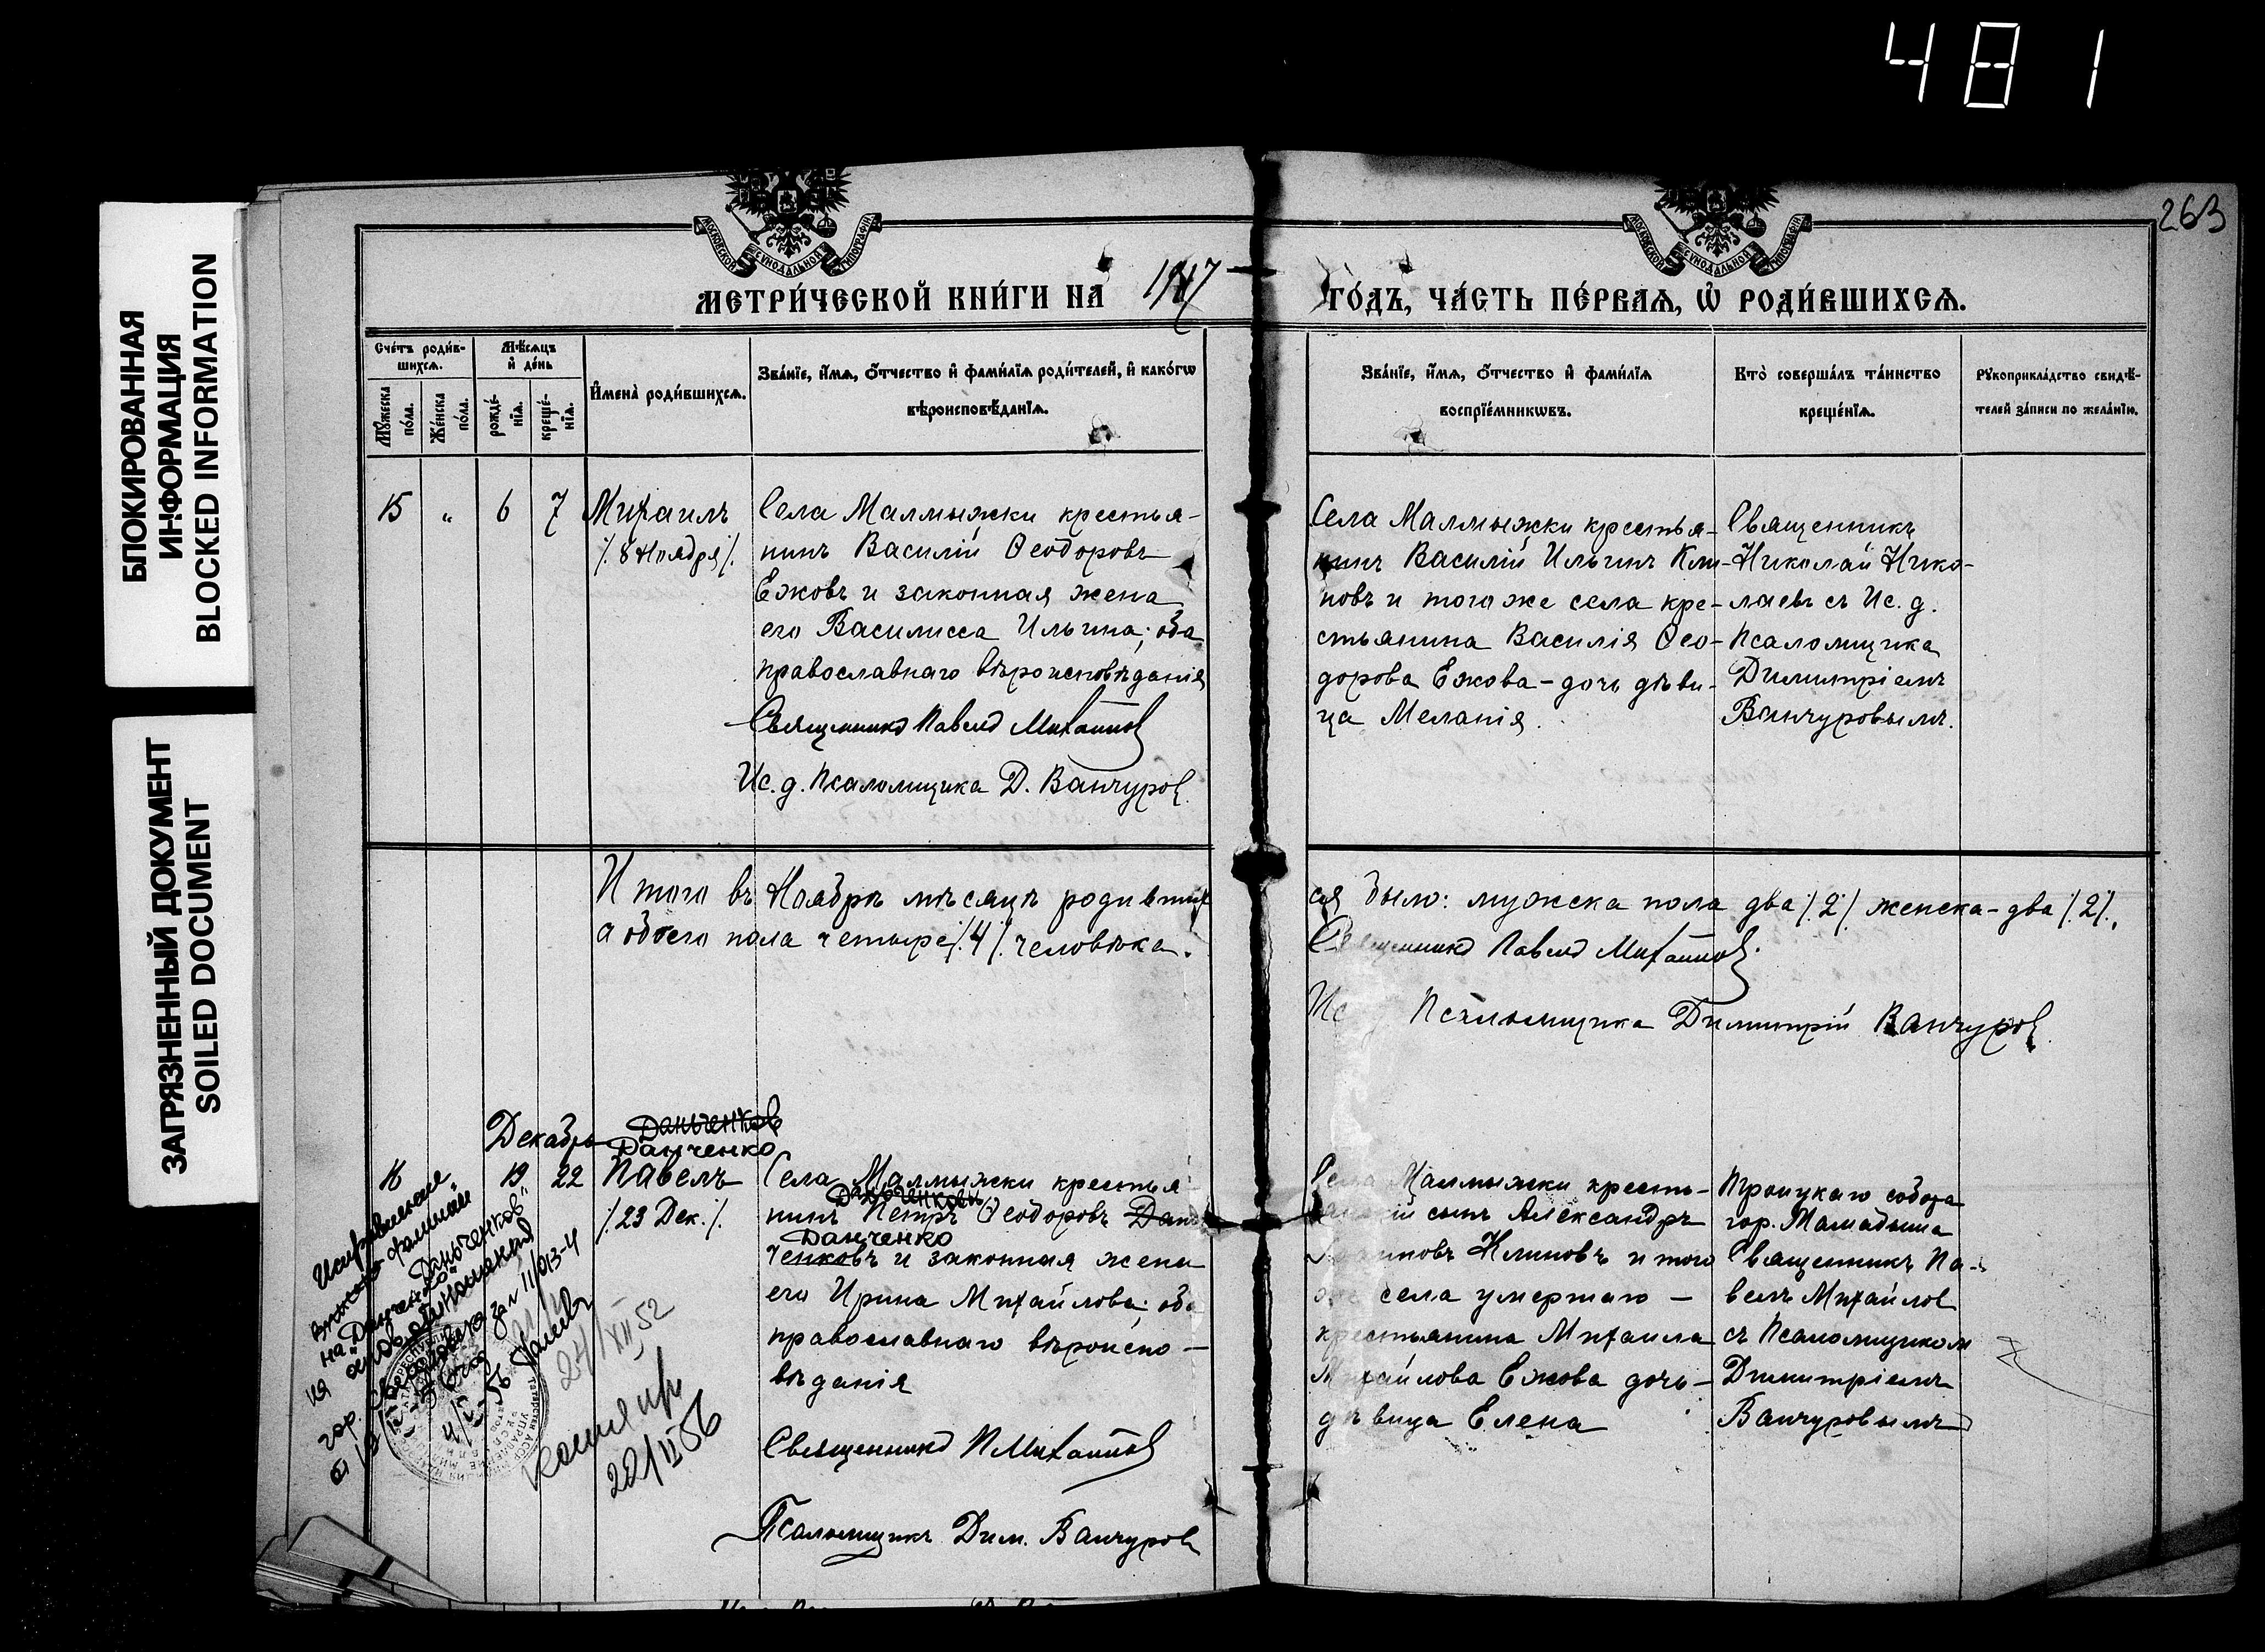 481
БЛОКИРОВАННАЯ
ИНФОРМАЦИЯ
BLOCKED INFORMATION
ЗАГРЯЗНЕННЫЙ ДОКУМЕНТ
SOILED DOCUMENT
263
МОСКОВСКОЙ СѴНОДАЛЬНОЙ ТИПОГРАФІИ
МОСКОВСКОЙ СѴНОДАЛЬНОЙ ТИПОГРАФІИ
МЕТРИ́ЧЕСКОЙ КНИ́ГИ НА 1917 ГО́ДЪ, ЧА́СТЬ ПЕ́РВАѦ, Ѡ҆ РОДИ́ВШИХСѦ.
Сче́тъ роди́в-
шихсѧ.
Мꙋ́жеска
по́ла.
Же́нска
по́ла.
Мѣ́сѧцъ
и҆ де́нь
рожде́-
нїѧ.
креще́-
нїѧ.
И҆мена̀ роди́вшихсѧ.
Зва́нїе, и҆́мѧ, ѻ҆́тчество и҆ фами́лїѧ роди́телей, и҆ како́гѡ
вѣроисповѣ́данїѧ.
Зва́нїе, и҆́мѧ, ѻ҆́тчество и҆ фами́лїѧ
воспрїе́мникѡвъ.
Кто̀ соверша́лъ та́инство
креще́нїѧ.
Рꙋкоприкла́дство свидѣ́-
телей за́писи по жела́нїю.
15 " 6 7
Михаилъ
/. 8 Ноября /.
Села Малмыжки крестья-
нинъ Василій Ѳеодоровъ
Ежовъ и законная жена
его Василисса Ильина; оба
православнаго вѣроисповѣданія
Священникъ Павелъ Михайловъ
Ис. д. Псаломщика Д. Ванчуровъ
Села Малмыжки крестья-
нинъ Василій Ильинъ Кли-
новъ и того же села кре-
стьянина Василія Ѳео-
дорова Ежова - дочь дѣви-
ца Меланія.
Священникъ
Николай Нико-
лаевъ съ Ис. д.
Псаломщика
Димитріемъ
Ванчуровымъ.
Итого въ Ноябрѣ мѣсяцѣ родивших
ся было: мужска пола два /. 2 /. женска - два /. 2 /.
а обоего пола четыре /. 4 /. человѣка.
Священникъ Павелъ Михайловъ
Ис Псаломщика Димитрій Ванчуровъ
Декабрь
Даньченков
Данченко
16 19 22
Павелъ
/. 23 Дек. /.
Села Малмыжки крестья
Даньченков
нинъ Петръ Ѳеодоровъ Дань
Данченко
ченковъ и законная жена
его Ирина Михайлова; оба
православнаго вѣроиспо-
вѣданія
Священникъ П Михайловъ
Псаломщикъ Дим. Ванчуровъ
Села Малмыжки кресть-
сынъ Александръ
Клиновъ и того
села умершаго -
крестьянина Михаила
Михайлова Ежова дочь -
дѣвица Елена
Троицкаго собора
гор. Мамадыша
Священникъ Па-
велъ Михайлов
съ Псаломщиком
Димитріемъ
Ванчуровымъ
Исправление
фамилии
Даньченков"
на "Данченко"
гор. Свердловска за № 11/013-4
4/V-56
27/XII 52
Копия
22/II 56